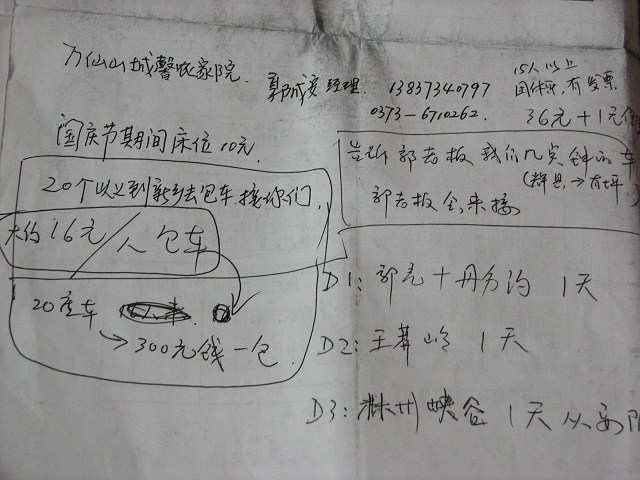 万仙山城馨农家院.
郭成安经理. 13837340797
0373-6710262.
15人以上
团体票,有发票
36元+1元
国庆节期间床位10元.
20个以上到新乡去包车,接你们.
大约16元/人 包车
20座车
→300元钱一包
告诉郭老板 我们几点钟的车
(辉县→南坪)
郭老板会来接
D1: 郭亮+丹分沟 1天
D2: 王莽岭 1天
D3: 林州峡谷 1天 从安阳